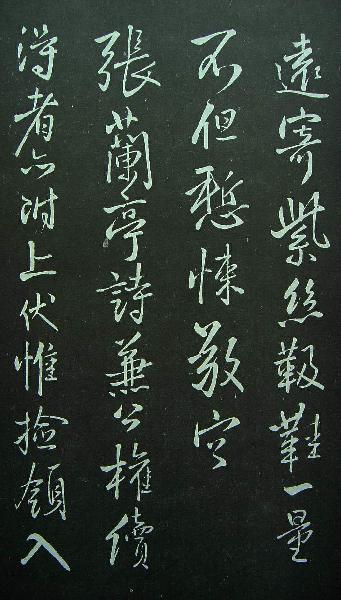 遠寄紫絲靸鞋一量
不但慙悚敬空
張蘭亭詩兼公權續
得者亦附上伏惟撿領入